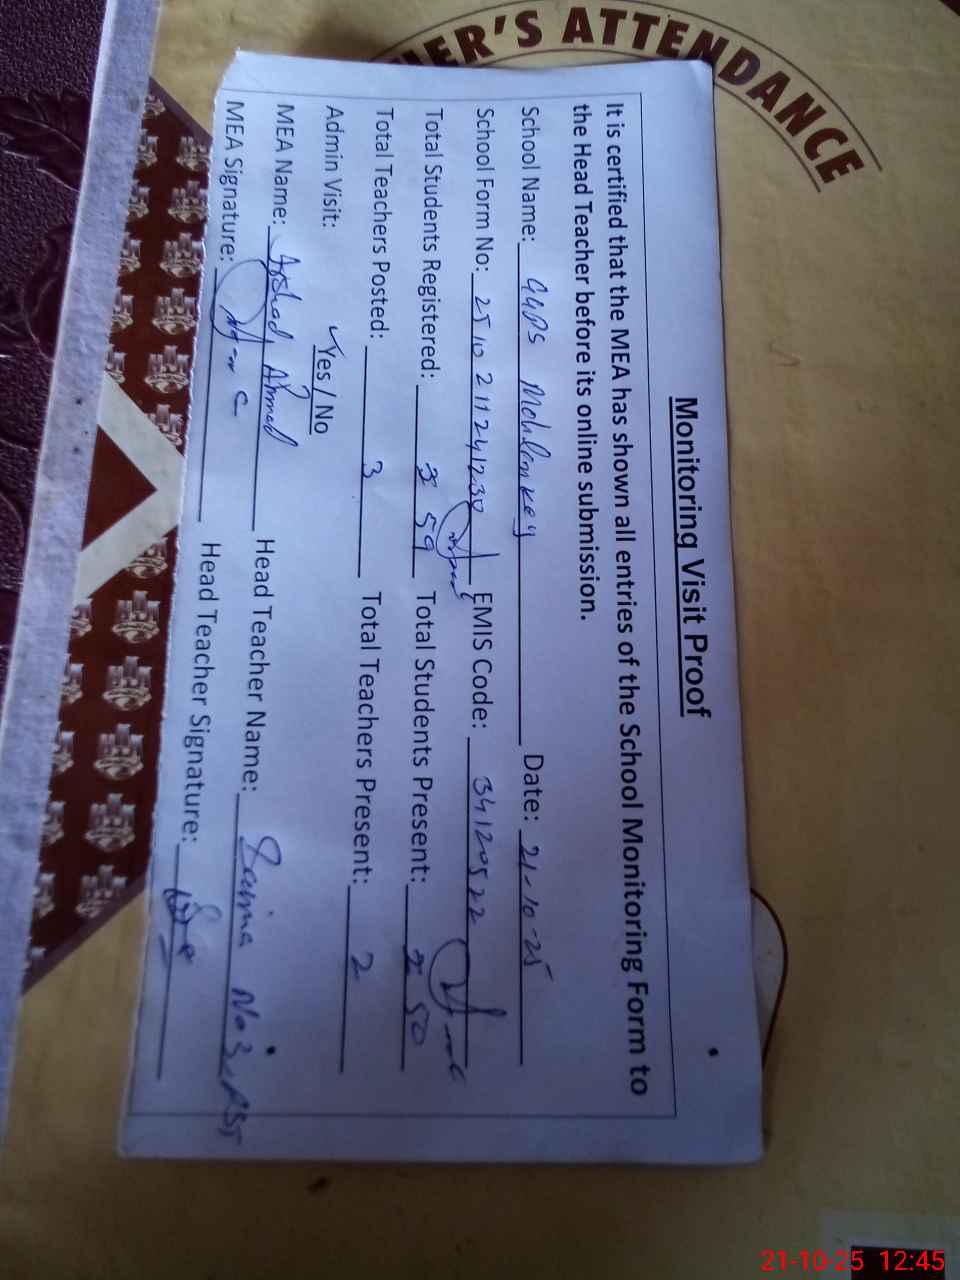 ER'S ATTENDANCE
Monitoring Visit Proof
It is certified that the MEA has shown all entries of the School Monitoring Form to
the Head Teacher before its online submission.
School Name: GGPS Date: 21-10-25
School Form No: EMIS Code: 34120522
Total Students Registered: 59 Total Students Present: 50
Total Teachers Posted: 3 Total Teachers Present: 2
Admin Visit: ✓Yes / No
MEA Name: Arshad Ahmed Head Teacher Name: PST
MEA Signature: Head Teacher Signature:
21-10-25 12:45